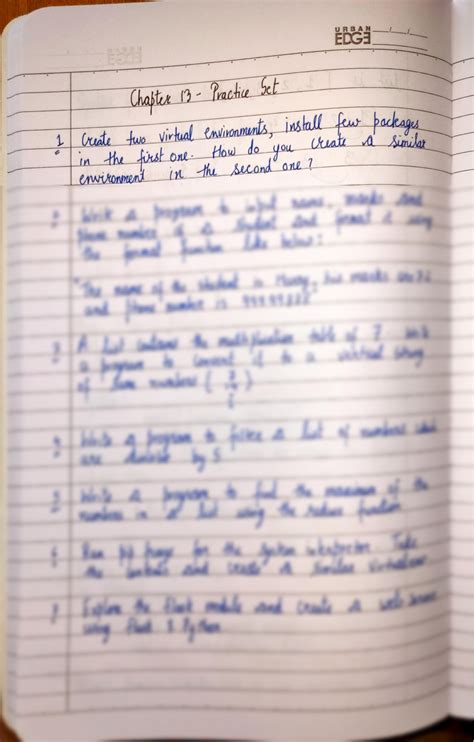 URBAN
EDGE
Chapter 13 - Practice Set
1 Create two virtual environments, install few packages
in the first one. How do you create a similar
environment in the second one?
2 Write a program to input name, marks and
phone number of a student and format it using
the format function like below:
"The name of the student is his marks are
and phone number is
3 A list contains the multiplication table of 7. Write
a program to convert it to a vertical string
of same numbers
4 Write a program to filter a list of numbers which
are divisible by 5
5 Write a program to find the maximum of the
numbers in a list using the reduce function
6 Run pip freeze for the system interpreter. Take
the contents and create a similar virtual
7 Explore the flask module and create a web server
using flask & Python